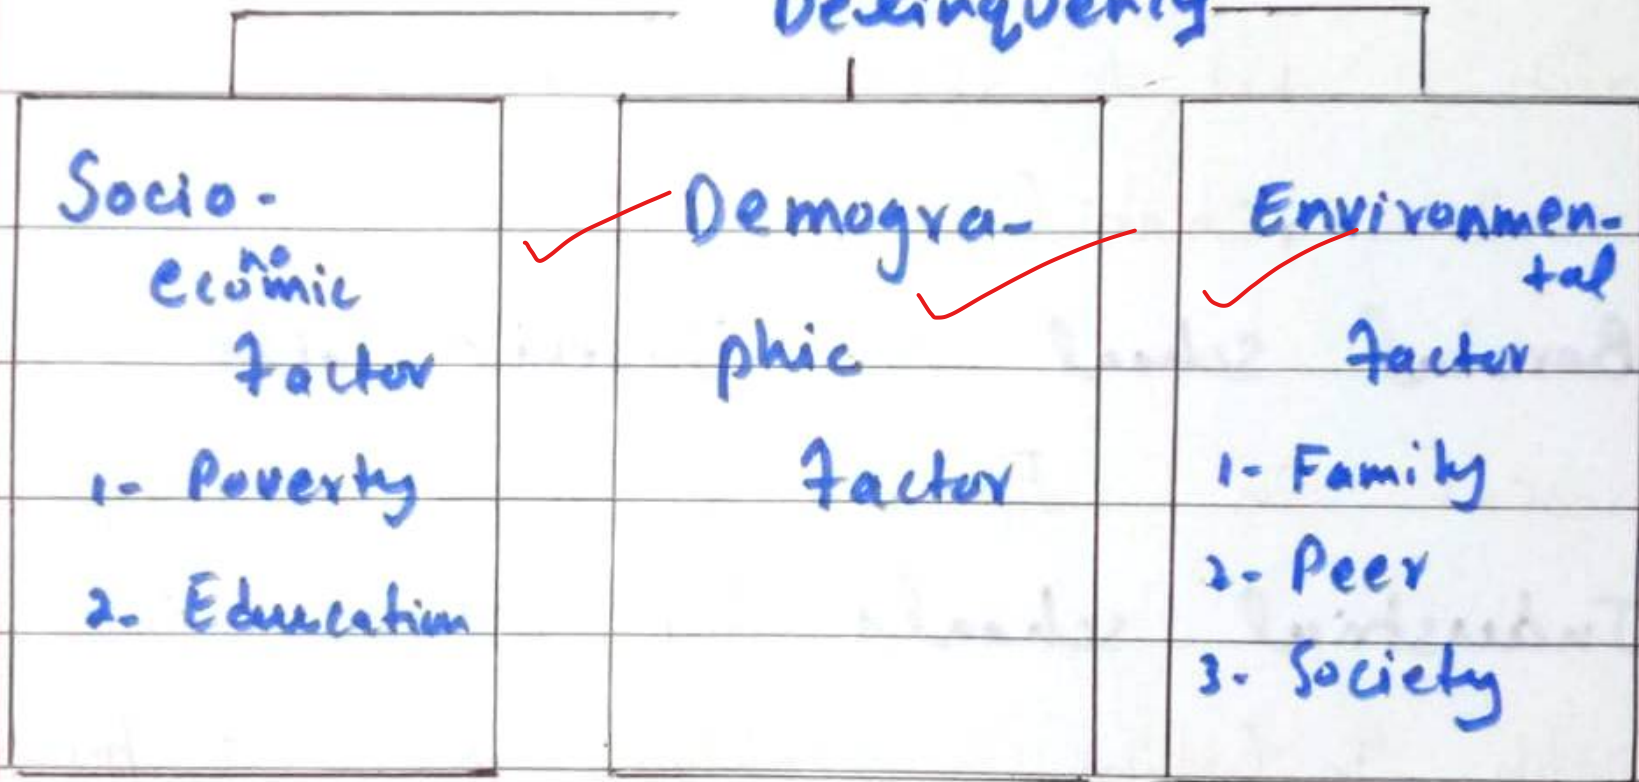 Delinquency
Socio-
economic
Factor
1- Poverty
2- Education
Demogra-
phic
Factor
Environmen-
tal
Factor
1- Family
2- Peer
3- Society